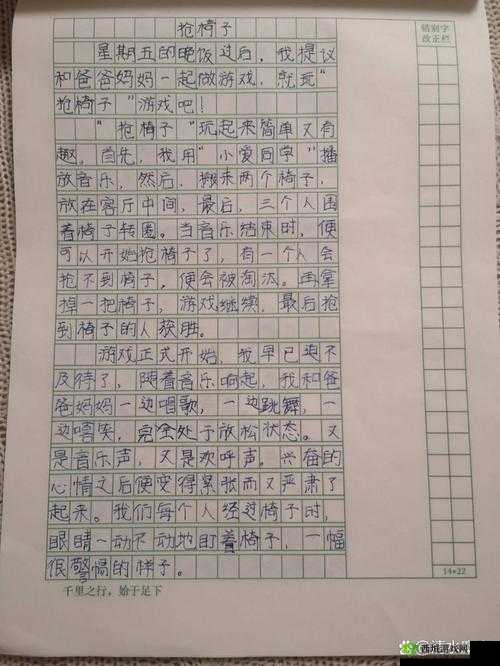 抢椅子
星期五的晚饭过后，我提议
和爸爸妈妈一起做游戏，就玩“
抢椅子”游戏吧！
“抢椅子”玩起来简单又有
趣，首先，我用“小爱同学”播
放音乐，然后，搬来两个椅子，
放在客厅中间，最后，三个人围
着椅子转圈。当音乐结束时，便
可以开始抢椅子了，有一个人会
抢不到椅子，便会被淘汰。再拿
掉一把椅子，游戏继续，最后抢
到椅子的人获胜。
游戏正式开始，我早已迫不
及待了，随着音乐响起，我和爸
爸妈妈一边唱歌，一边跳舞，一
边嘻笑，完全处于放松状态。又
是音乐声，又是欢呼声。兴奋的
心情之后便变得紧张而又严肃了
起来。我们每个人经过椅子时，
眼睛一动不动地盯着椅子，一幅
很警惕的样子。
错别字
改正栏
14×22
千里之行，始于足下
西瓜游戏网